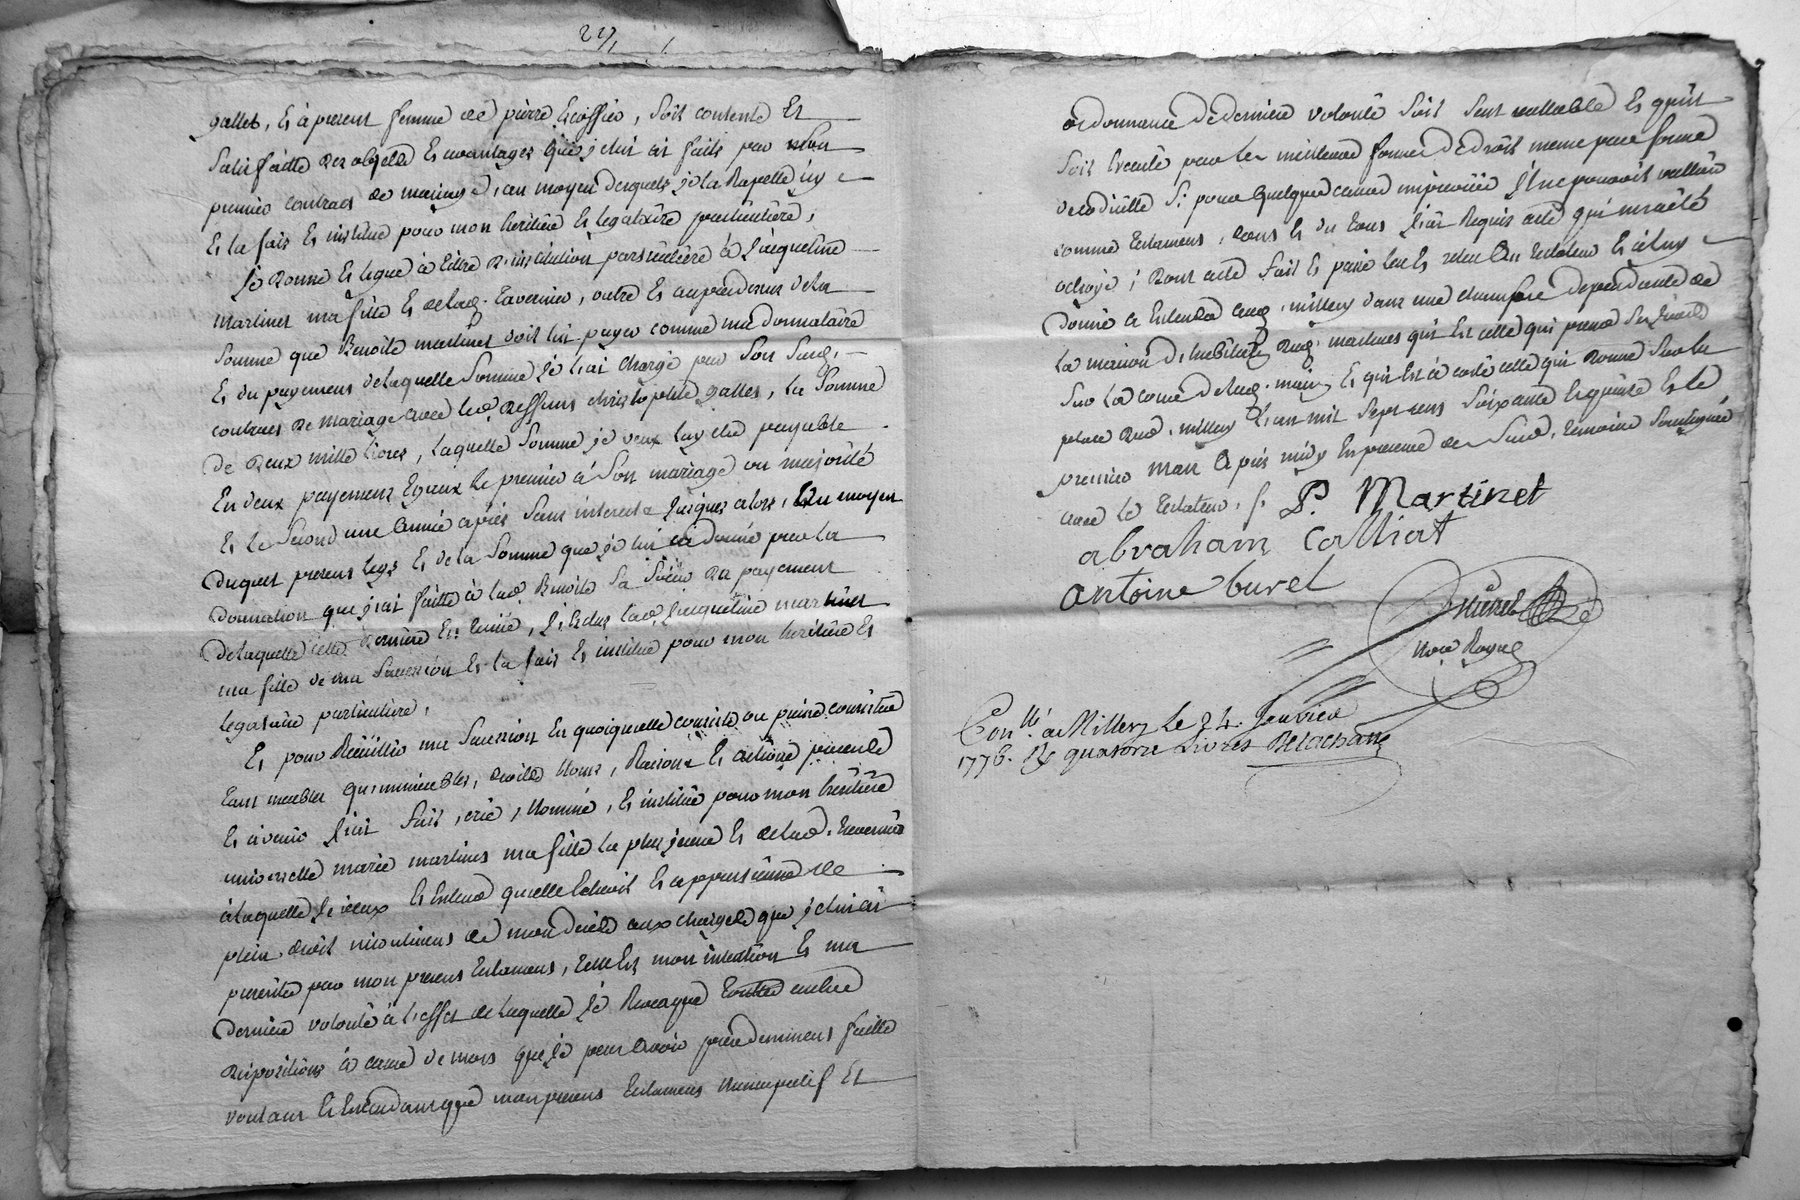 227
gallet, Et à present femme de pierre Escoffier, soit contente Et
satisfaitte des objets Et avantages que je lui ai faits par son
premier contract de mariage, au moyen desquels je la Rapelle icy
Et la fais Et institue pour mon heritiere Et legataire particulière,
Je Donne Et legue à titre d'institution particulière à Jacqueline
martinet ma fille Et de lad. tavernier, outre Et au pardessus de la
somme que Benoite martinet doit lui payer comme ma donnataire
Et du payement de laquelle somme je l'ai chargé par son susd.
contract de mariage avec led. deffunt christophle gallet, la somme
de deux mille livres, laquelle somme je veux luy etre payable
En deux payements Egaux le premier à son mariage ou majorité
Et le second une année après sans interests jusques alors, Au moyen
duquel present legs Et de la somme que je lui ai donné par la
donnation que j'ai faitte à lad. Benoite sa sœur du payement
de laquelle cette derniere Est tenüe, j'Exclus lad. jacqueline martinet
ma fille de ma succession Et la fais Et institue pour mon heritiere Et
legataire particuliere,
Et pour Recüeillir ma succession En quoiquelle consiste ou puisse consister
tant meubles qu'immeubles, droits noms, Raisons Et actions presents
Et avenir j'ai fait, créé, Nommé, Et institüé pour mon heritiere
universelle marie martinet ma fille la plus jeune Et de lad. tavernier
à laquelle je veux Et Entend qu'elle Echoit Et appartienne de
plein droit incontinent de mon decès aux charges que je lui ai
prescrites par mon present testament, telle Est mon intention Et ma
dernière volonté à l'effet de laquelle je Revoque toutes autres
dispositions à cause de mort que je peux avoir precedemment faittes
voulant Et Entendant que mon present testament nuncupatif Et
ordonnance de dernière volonté soit seul vallable Et qu'il
soit Executé par les meilleures formes de droit meme par forme
de codicille si pour quelque cause impreveüe il ne pouvoit valloir
comme testament, dont Et du tout j'ai Requis acte qui m'a eté
octroyé; Dont acte fait Et passé leu Et releu Au testateur Et à luy
donné à Entendre aud. millery dans une chambre dependante de
la maison d'habitation dud. martinet qui Est celle qui prend ses jours
sur la cour de lad. maison Et qui Est à coté celle qui donne sur la
place dud. millery L'an mil sept cens soixante Et quinze Et le
premier mars Après midy En presence des susd. temoins soussignés
avec le testateur.
P. Martinet
abraham Colliat
antoine burel
Nore Royal
Conllé. à Millery le 24. Janvier
1776. Rx quatorze livres Delachana